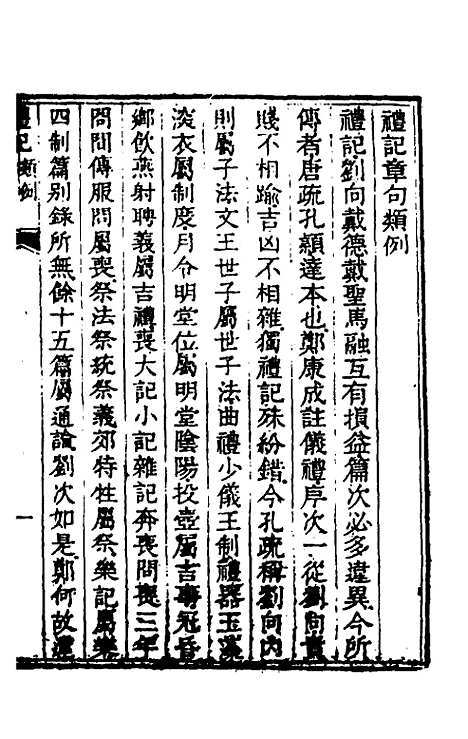 禮記章句類例
禮記劉向戴德戴聖馬融互有損益篇次必多違異今所
傳者唐疏孔穎達本也鄭康成註儀禮序次一從劉向貴
賤不相踰吉凶不相雜獨禮記殊紛錯今孔疏稱劉向內
則屬子法文王世子屬世子法曲禮少儀王制禮器玉藻
深衣屬制度月令明堂位屬明堂陰陽投壺屬吉事冠昏
鄉飲燕射聘義屬吉禮喪大記小記雜記奔喪問喪三年
問間傳服問屬喪祭法祭統祭義郊特牲屬祭樂記屬樂
四制篇別錄所無餘十五篇屬通論劉次如是鄭何故違
禮記 類例
一